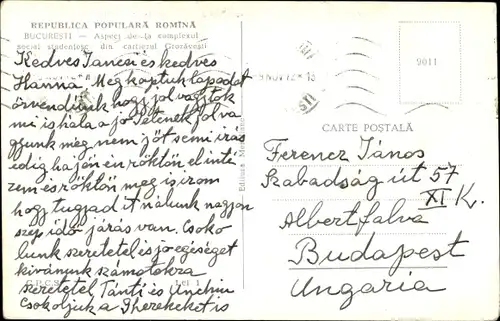 REPUBLICA POPULARA ROMÎNA
BUCUREȘTI — Aspect de la complexul
social studențesc din cartierul Grozăvești
Kedves Jancsi és kedves
Hanna. Megkaptuk lapodat
örvendünk hogy jol vagytok
mi is hála a jo Istenek jol va
gyunk meg nem jöt semi irás
edig ha jön én röktön el inté
zem és röktön meg is irom
hogy tugjad it nálunk nagyon
szép idö járás van. Csoko
lunk szeretetel és jo egéséget
kivánunk számotokra
szeretetel Tánti és Unchiu
Csokoljuk a Gherekeket is
Lei 1
Editura Meridiane
9011
CARTE POȘTALĂ
Ferencz János
Szabadság út 57
XI K.
Albertfalva
Budapest
Ungaria